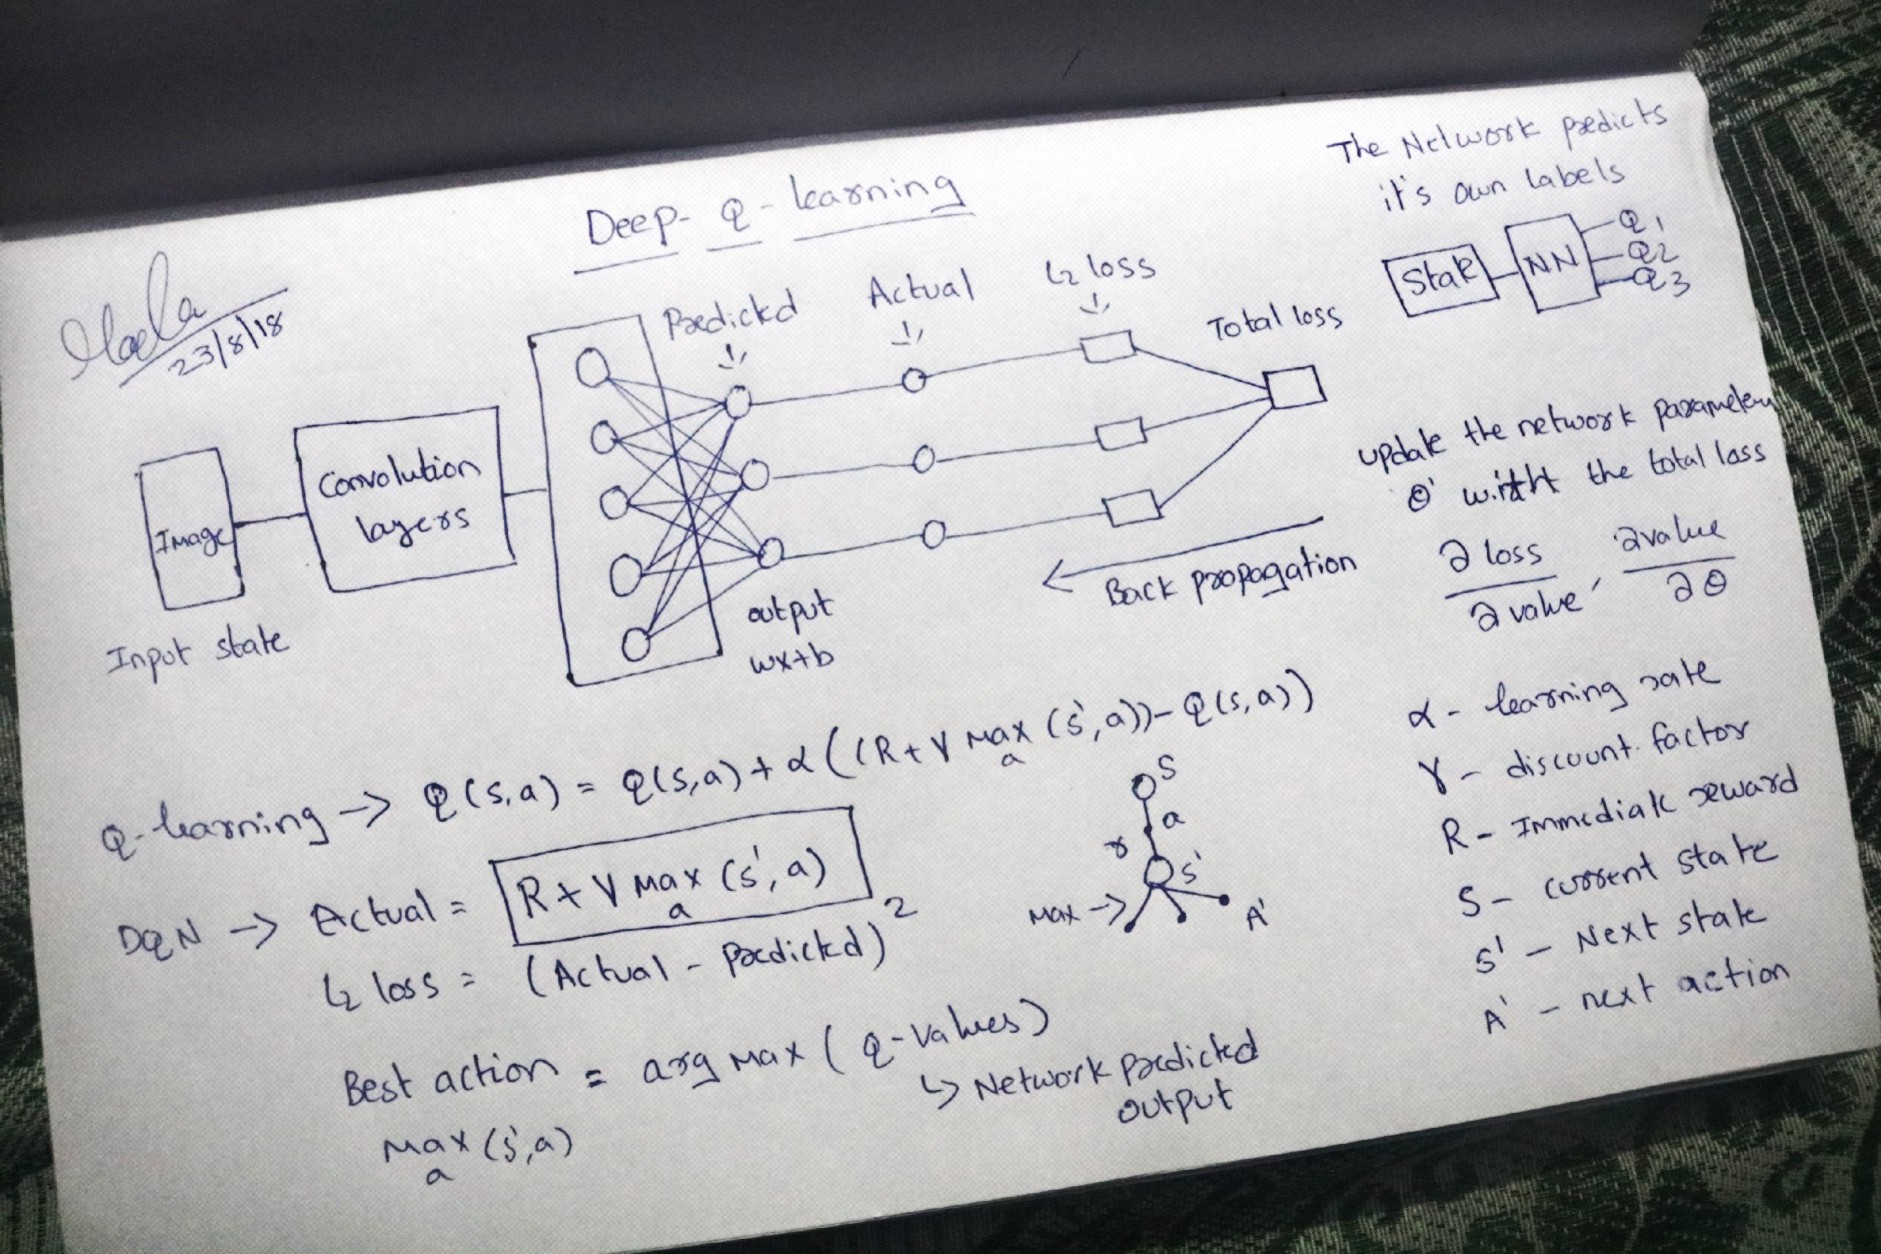 The Network predicts
it's own labels
State NN Q1
Q2
Q3
Deep-Q-learning
23/8/18
Predicted Actual L2 loss Total loss
Image
Convolution
layers
Input state
output
wx+b
Back propagation
update the network parameters
θ' with the total loss
∂ loss / ∂ value , ∂ value / ∂θ
Q-learning → Q(s,a) = Q(s,a) + α((R+γ Max a (s',a)) - Q(s,a))
DQN → Actual = R + γ Max a (s',a)
L2 loss = (Actual - Predicted)²
Best action = arg max (Q-values)
↳ Network predicted
output
Max a (s',a)
S
a
r
s'
Max →
A'
α - learning rate
γ - discount factor
R - Immediate reward
S - current state
s' - Next state
A' - next action